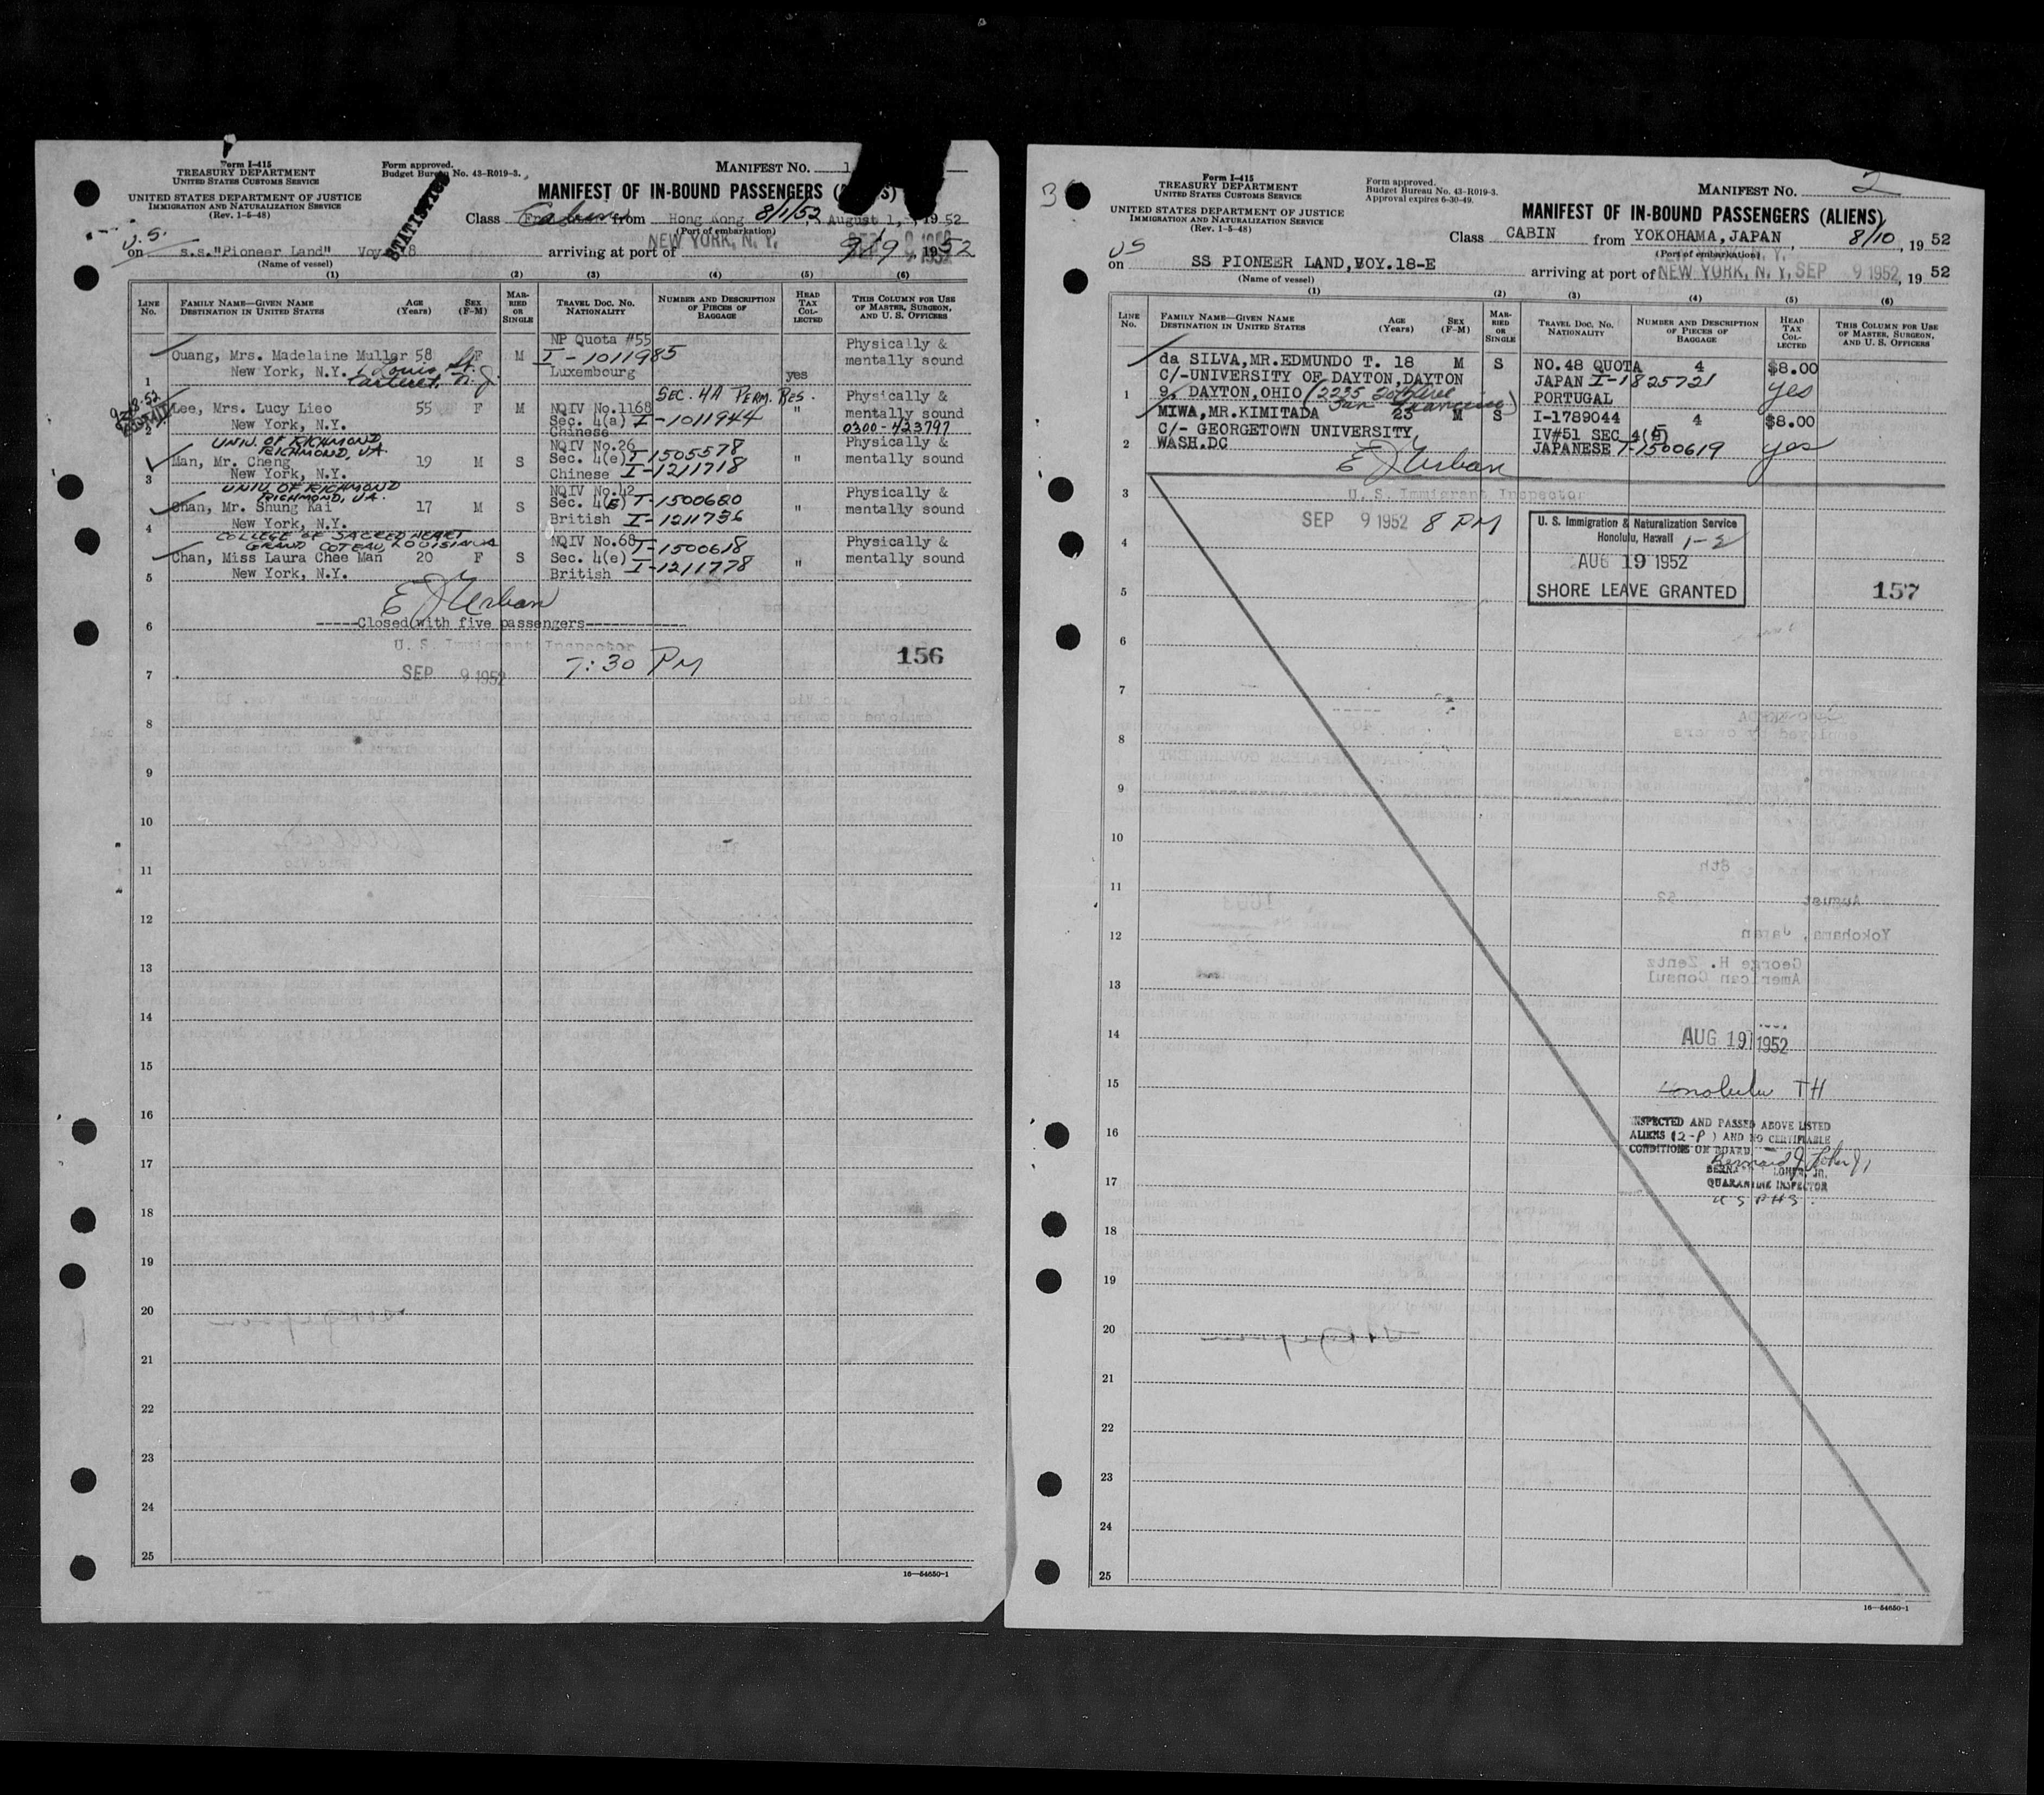 Form I-415
TREASURY DEPARTMENT
UNITED STATES CUSTOMS SERVICE
UNITED STATES DEPARTMENT OF JUSTICE
IMMIGRATION AND NATURALIZATION SERVICE
(Rev. 1-5-48)
Form approved.
Budget Bureau No. 43-R019-3.
STATISTICS
MANIFEST NO. 1
MANIFEST OF IN-BOUND PASSENGERS
Class Cabin from Hong Kong 8/1/52, August 1, 1952
(Port of embarkation)
U.S.
on s.s."Pioneer Land" Voy. 18 arriving at port of NEW YORK, N. Y. 9/9, 1952
(Name of vessel)
(1) (2) (3) (4) (5) (6)
LINE No. FAMILY NAME—GIVEN NAME DESTINATION IN UNITED STATES AGE (Years) SEX (F-M) MARRIED OR SINGLE TRAVEL DOC. NO. NATIONALITY NUMBER AND DESCRIPTION OF PIECES OF BAGGAGE HEAD TAX COLLECTED THIS COLUMN FOR USE OF MASTER, SURGEON, AND U. S. OFFICERS
NP Quota #55 Physically &
Ouang, Mrs. Madelaine Muller 58 F M I-1011985 mentally sound
New York, N.Y. 1 Louis St. Luxembourg yes
1 Carteret, N.J.
SEC. 4A PERM. RES. Physically &
Lee, Mrs. Lucy Lieo 55 F M NQIV No.1168 " mentally sound
New York, N.Y. Sec. 4(a) I-1011944 0300-423797
2 Chinese
UNIV. OF RICHMOND NQIV No.26 Physically &
RICHMOND, VA.
Man, Mr. Cheng 19 M S Sec. 4(e) T-1505578 " mentally sound
3 New York, N.Y. Chinese I-1211718
UNIV. OF RICHMOND NQIV No.42 Physically &
RICHMOND, VA.
Chan, Mr. Shung Kai 17 M S Sec. 4(E) T-1500620 " mentally sound
4 New York, N.Y. British I-1211736
COLLEGE OF SACRED HEART NQIV No.68 Physically &
GRAND COTEAU, LOUISIANA
Chan, Miss Laura Chee Man 20 F S Sec. 4(e) T-1500618 " mentally sound
5 New York, N.Y. British I-1211778
E J Urban
6 -----Closed with five passengers-----------
U. S. Immigrant Inspector
156
7 SEP 9 1952 7:30 PM
8
9
10
11
12
13
14
15
16
17
18
19
20
21
22
23
24
25
16—54650-1
Form I-415
TREASURY DEPARTMENT
UNITED STATES CUSTOMS SERVICE
UNITED STATES DEPARTMENT OF JUSTICE
IMMIGRATION AND NATURALIZATION SERVICE
(Rev. 1-5-48)
Form approved.
Budget Bureau No. 43-R019-3.
Approval expires 6-30-49.
MANIFEST NO. 2
MANIFEST OF IN-BOUND PASSENGERS (ALIENS)
Class CABIN from YOKOHAMA, JAPAN, 8/10, 1952
(Port of embarkation)
US
on SS PIONEER LAND, VOY.18-E arriving at port of NEW YORK, N. Y. SEP 9 1952, 1952
(Name of vessel)
(1) (2) (3) (4) (5) (6)
LINE No. FAMILY NAME—GIVEN NAME DESTINATION IN UNITED STATES AGE (Years) SEX (F-M) MARRIED OR SINGLE TRAVEL DOC. NO. NATIONALITY NUMBER AND DESCRIPTION OF PIECES OF BAGGAGE HEAD TAX COLLECTED THIS COLUMN FOR USE OF MASTER, SURGEON, AND U. S. OFFICERS
da SILVA,MR.EDMUNDO T. 18 M S NO.48 QUOTA 4 $8.00
C/-UNIVERSITY OF DAYTON,DAYTON JAPAN I-1825721 yes
1 9, DAYTON,OHIO (2235 20th Ave PORTUGAL
San Francisco)
MIWA,MR.KIMITADA 23 M S I-1789044 4 $8.00
C/- GEORGETOWN UNIVERSITY, IV#51 SEC 4(E)
2 WASH.DC JAPANESE T-1500619 yes
E J Urban
3 U. S. Immigrant Inspector
SEP 9 1952 8 PM
U. S. Immigration & Naturalization Service
Honolulu, Hawaii 1-2
4 AUG 19 1952
SHORE LEAVE GRANTED
157
5
6
7
8
9
10
11
12
13
14 AUG 19 1952
15 Honolulu TH
16 INSPECTED AND PASSED ABOVE LISTED
ALIENS (2-P) AND NO CERTIFIABLE
CONDITIONS ON BOARD
LOHER, JR.
17 QUARANTINE INSPECTOR
USPHS.
18
19
20
21
22
23
24
25
16—54650-1